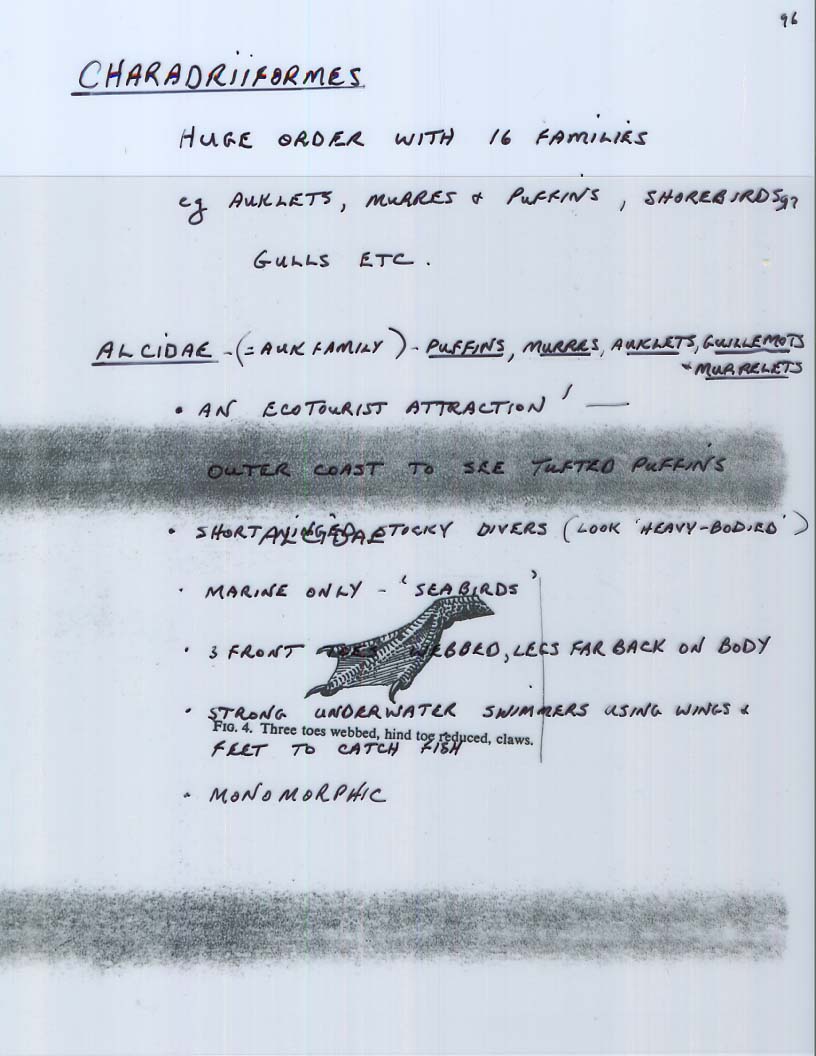 96
CHARADRIIFORMES
HUGE ORDER WITH 16 FAMILIES
eg AUKLETS, MURRES & PUFFINS, SHOREBIRDS, 97
GULLS ETC.
ALCIDAE - (= AUK FAMILY) - PUFFINS, MURRES, AUKLETS, GUILLEMOTS
& MURRELETS
• AN ECOTOURIST ATTRACTION! —
OUTER COAST TO SEE TUFTED PUFFINS
• SHORT WINGED STOCKY DIVERS (LOOK 'HEAVY-BODIED')
ALCIDAE
• MARINE ONLY - 'SEABIRDS'
• 3 FRONT TOES WEBBED, LEGS FAR BACK ON BODY
• STRONG UNDERWATER SWIMMERS USING WINGS &
FIG. 4. Three toes webbed, hind toe reduced, claws.
FEET TO CATCH FISH
• MONOMORPHIC